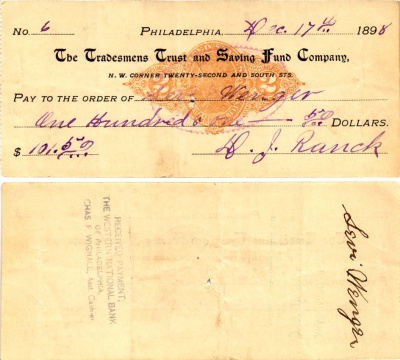 No. 6 Philadelphia, Dec. 17th 1898
The Tradesmens Trust and Saving Fund Company,
N. W. CORNER TWENTY-SECOND AND SOUTH STS.
PAY TO THE ORDER OF Levi Wenger
One Hundred & one — 50/100 DOLLARS.
$ 101.50/100 D. J. Ranck
RECEIVED PAYMENT,
THE WESTERN NATIONAL BANK
OF PHILADELPHIA.
CHAS. F. WIGNALL, Asst. Cashier
Levi Wenger